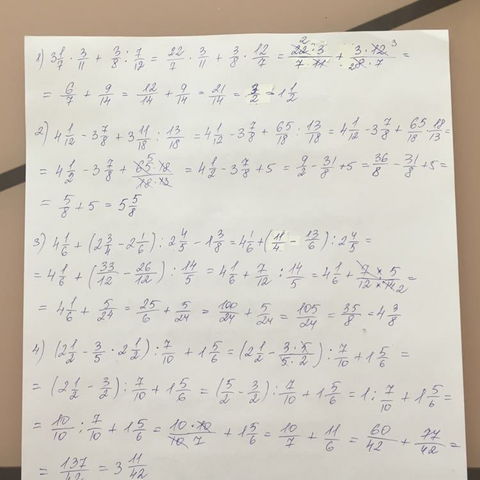 1) 3 1/7 · 3/11 + 3/8 · 7/12 = 22/7 · 3/11 + 3/8 · 12/7 = 22·3/7·11 + 3·12/8·7 =
= 6/7 + 9/14 = 12/14 + 9/14 = 21/14 = 3/2 = 1 1/2
2) 4 1/2 - 3 7/8 + 3 11/18 : 13/18 = 4 1/2 - 3 7/8 + 65/18 : 13/18 = 4 1/2 - 3 7/8 + 65/18 · 18/13 =
= 4 1/2 - 3 7/8 + 65·18/18·13 = 4 1/2 - 3 7/8 + 5 = 9/2 - 31/8 + 5 = 36/8 - 31/8 + 5 =
= 5/8 + 5 = 5 5/8
3) 4 1/6 + (2 3/4 - 2 1/6) : 2 4/5 - 1 3/8 = 4 1/6 + (11/4 - 13/6) : 2 4/5 =
= 4 1/6 + (33/12 - 26/12) : 14/5 = 4 1/6 + 7/12 : 14/5 = 4 1/6 + 7·5/12·14 2 =
= 4 1/6 + 5/24 = 25/6 + 5/24 = 100/24 + 5/24 = 105/24 = 35/8 = 4 3/8
4) (2 1/2 - 3/5 · 2 1/2) : 7/10 + 1 5/6 = (2 1/2 - 3·5/5·2) : 7/10 + 1 5/6 =
= (2 1/2 - 3/2) : 7/10 + 1 5/6 = (5/2 - 3/2) : 7/10 + 1 5/6 = 1 : 7/10 + 1 5/6 =
= 10/10 : 7/10 + 1 5/6 = 10·10/10·7 + 1 5/6 = 10/7 + 11/6 = 60/42 + 77/42 =
= 137/42 = 3 11/42